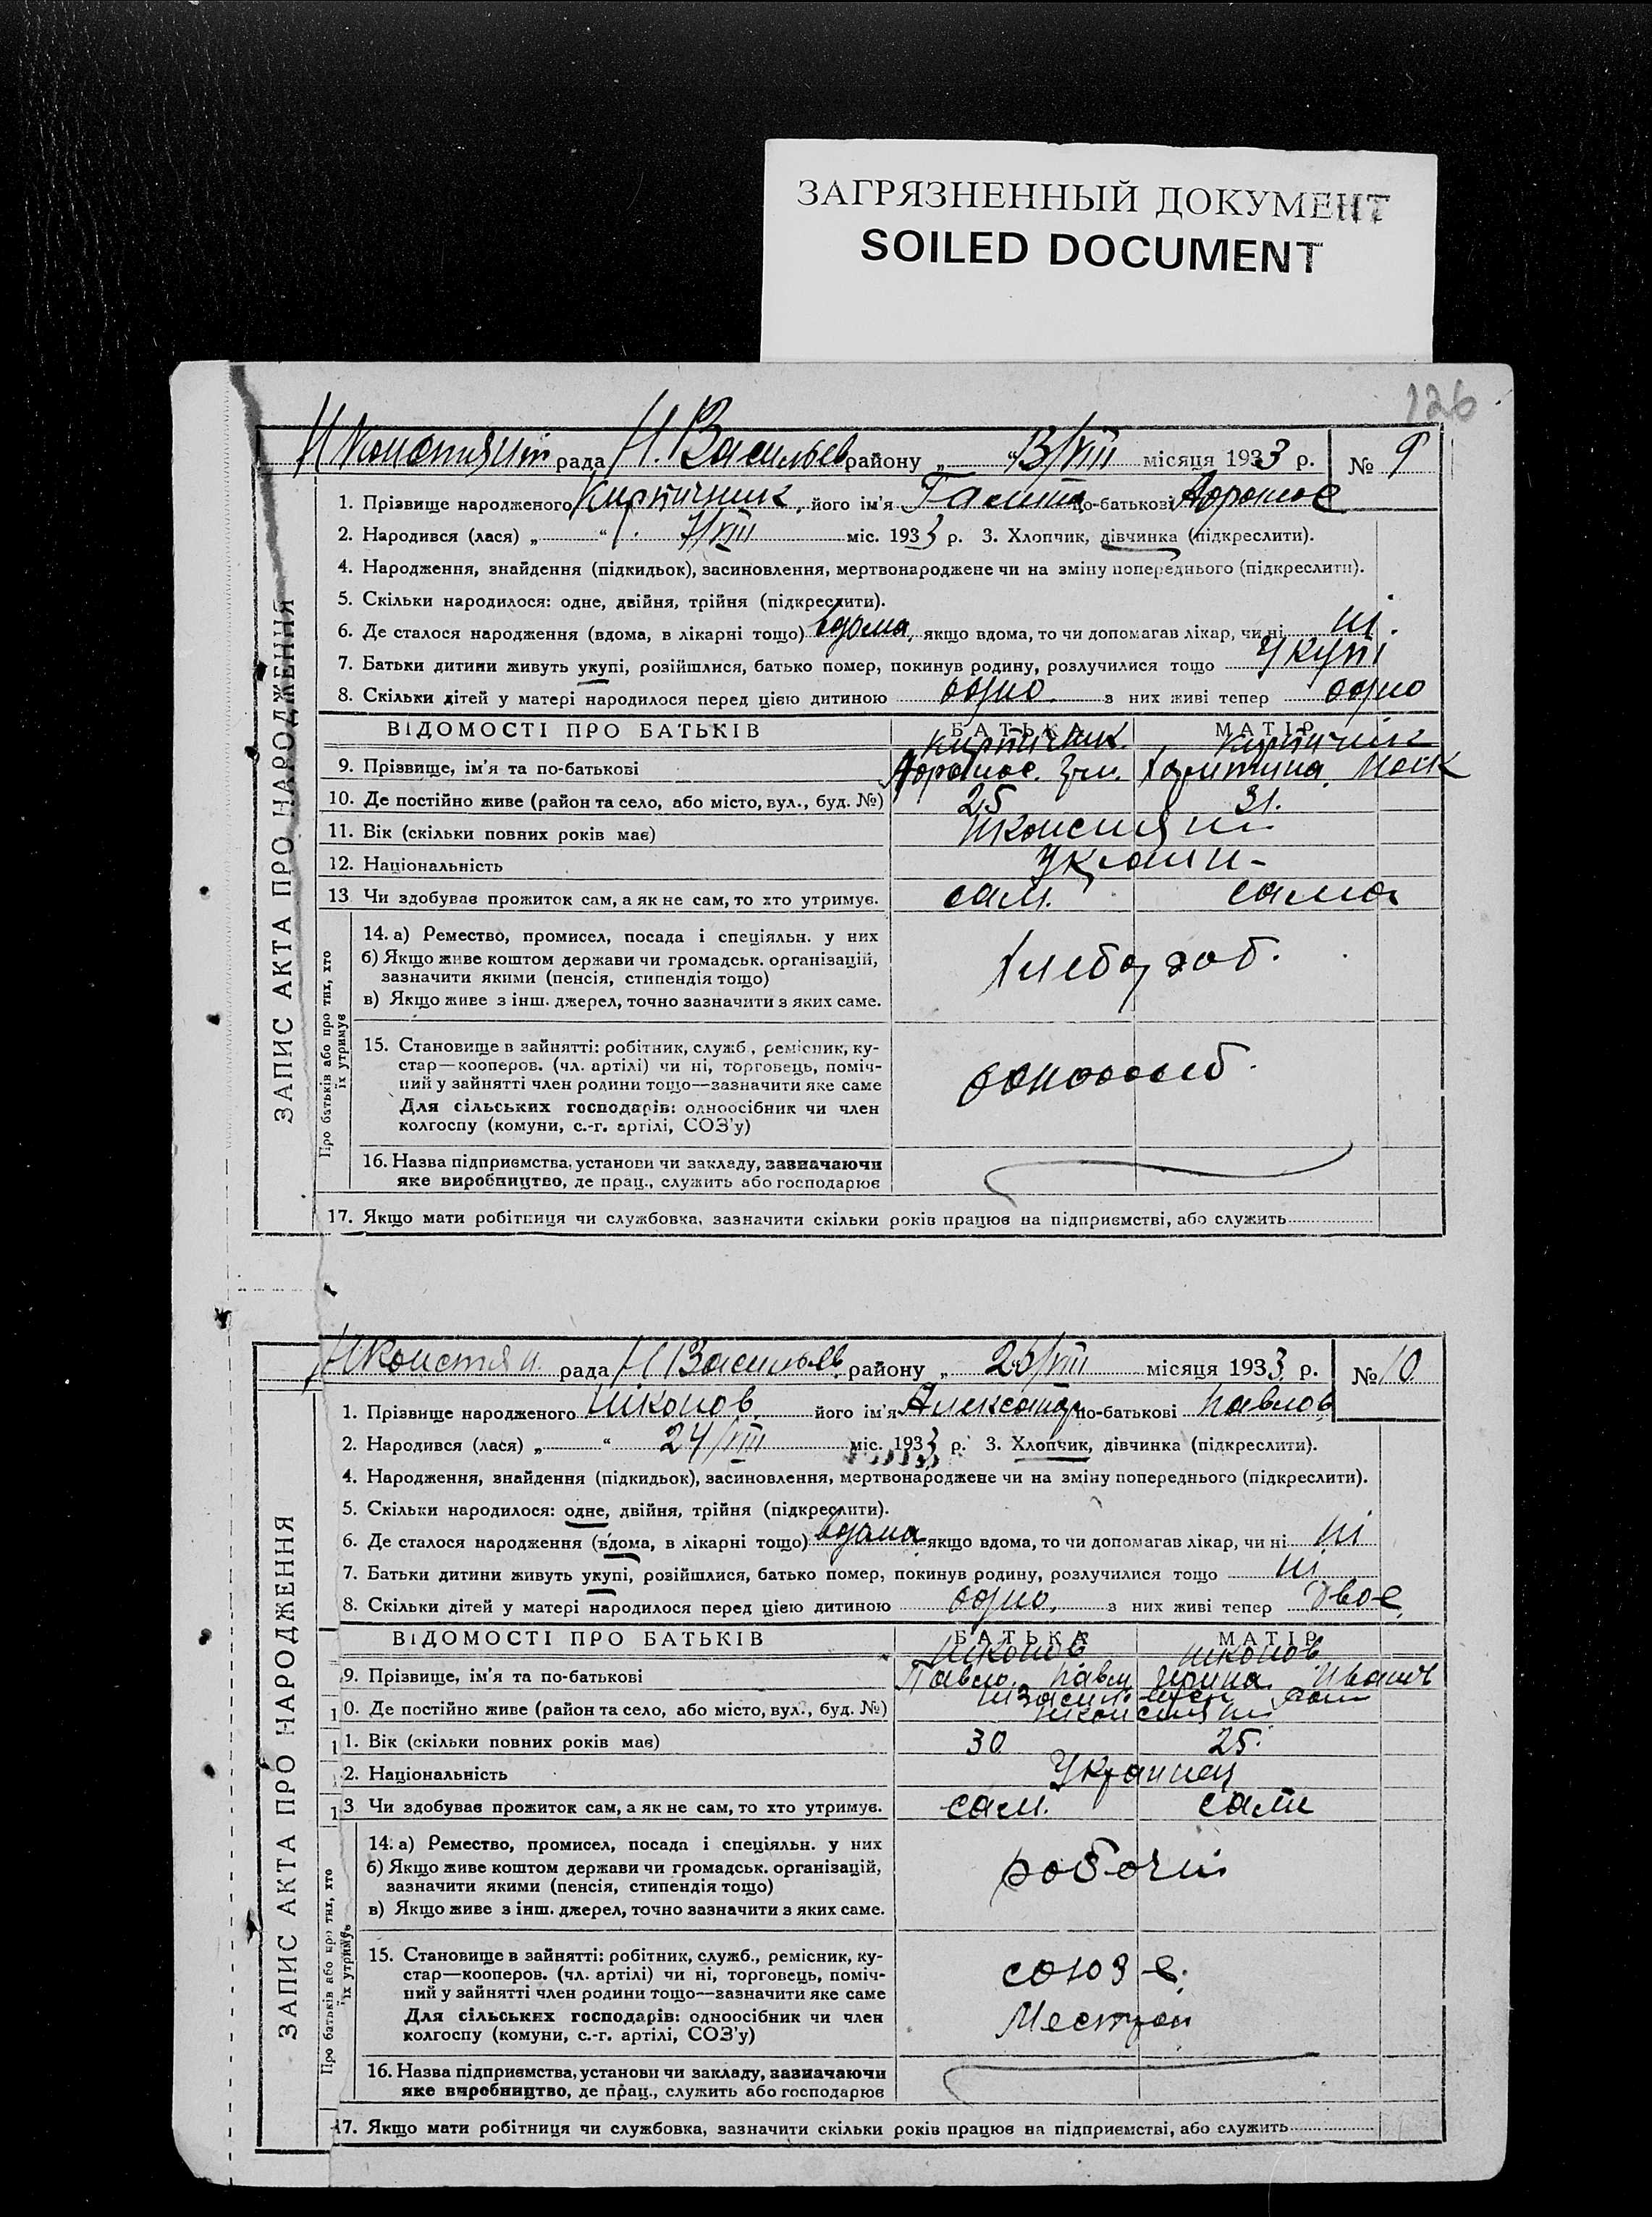 ЗАГРЯЗНЕННЫЙ ДОКУМЕНТ
SOILED DOCUMENT
126
рада Н. Васильев району „ “ 13/VIII місяця 1933 р. № 9
ЗАПИС АКТА ПРО НАРОДЖЕННЯ
1. Прізвище народженого Кирпичник, його ім'я Галина по-батькові
2. Народився (лася) „ “ 7/VIII міс. 1933 р. 3. Хлопчик, дівчинка (підкреслити).
4. Народження, знайдення (підкидьок), засиновлення, мертвонароджене чи на зміну попереднього (підкреслити).
5. Скільки народилося: одне, двійня, трійня (підкреслити).
6. Де сталося народження (вдома, в лікарні тощо) вдома, якщо вдома, то чи допомагав лікар, чи ні ні.
7. Батьки дитини живуть укупі, розійшлися, батько помер, покинув родину, розлучилися тощо укупі
8. Скільки дітей у матері народилося перед цією дитиною одно з них живі тепер одно
ВІДОМОСТІ ПРО БАТЬКІВ БАТЬКА МАТІР
Кирпичник. Кирпичник
9. Прізвище, ім'я та по-батькові
10. Де постійно живе (район та село, або місто, вул., буд. №) 25 31.
11. Вік (скільки повних років має)
12. Національність Украин-
13 Чи здобуває прожиток сам, а як не сам, то хто утримує. сам. сама
Про батьків або про тих, хто їх утримує
14. а) Ремество, промисел, посада і спеціяльн. у них
б) Якщо живе коштом держави чи громадськ. організацій,
зазначити якими (пенсія, стипендія тощо)
в) Якщо живе з інш. джерел, точно зазначити з яких саме.
хлебороб.
15. Становище в зайнятті: робітник, служб., ремісник, ку-
стар—кооперов. (чл. артілі) чи ні, торговець, поміч-
ний у зайнятті член родини тощо—зазначити яке саме
Для сільських господарів: одноосібник чи член
колгоспу (комуни, с.-г. артілі, СОЗ'у)
16. Назва підприємства, установи чи закладу, зазначаючи
яке виробництво, де прац., служить або господарює
17. Якщо мати робітниця чи службовка, зазначити скільки років працює на підприємстві, або служить
рада Н Васильев. району „ 26/VIII місяця 1933 р. № 10
ЗАПИС АКТА ПРО НАРОДЖЕННЯ
1. Прізвище народженого Ніконов його ім'я Александр по-батькові Павлов
2. Народився (лася) „ “ 24/VIII міс. 1933 р. 3. Хлопчик, дівчинка (підкреслити).
4. Народження, знайдення (підкидьок), засиновлення, мертвонароджене чи на зміну попереднього (підкреслити).
5. Скільки народилося: одне, двійня, трійня (підкреслити).
6. Де сталося народження (вдома, в лікарні тощо) вдома якщо вдома, то чи допомагав лікар, чи ні ні
7. Батьки дитини живуть укупі, розійшлися, батько помер, покинув родину, розлучилися тощо ні
8. Скільки дітей у матері народилося перед цією дитиною одно. з них живі тепер двое
ВІДОМОСТІ ПРО БАТЬКІВ БАТЬКА МАТІР
Ніконов Ніконов
9. Прізвище, ім'я та по-батькові Павло. Павл Ирина. Иванов
10. Де постійно живе (район та село, або місто, вул., буд. №)
11. Вік (скільки повних років має) 30 25.
12. Національність Украинец
13 Чи здобуває прожиток сам, а як не сам, то хто утримує. сам. сами
Про батьків або про тих, хто їх утримує
14. а) Ремество, промисел, посада і спеціяльн. у них
б) Якщо живе коштом держави чи громадськ. організацій,
зазначити якими (пенсія, стипендія тощо)
в) Якщо живе з інш. джерел, точно зазначити з яких саме.
робочий
15. Становище в зайнятті: робітник, служб., ремісник, ку-
стар—кооперов. (чл. артілі) чи ні, торговець, поміч-
ний у зайнятті член родини тощо—зазначити яке саме
Для сільських господарів: одноосібник чи член
колгоспу (комуни, с.-г. артілі, СОЗ'у)
16. Назва підприємства, установи чи закладу, зазначаючи
яке виробництво, де прац., служить або господарює
17. Якщо мати робітниця чи службовка, зазначити скільки років працює на підприємстві, або служить